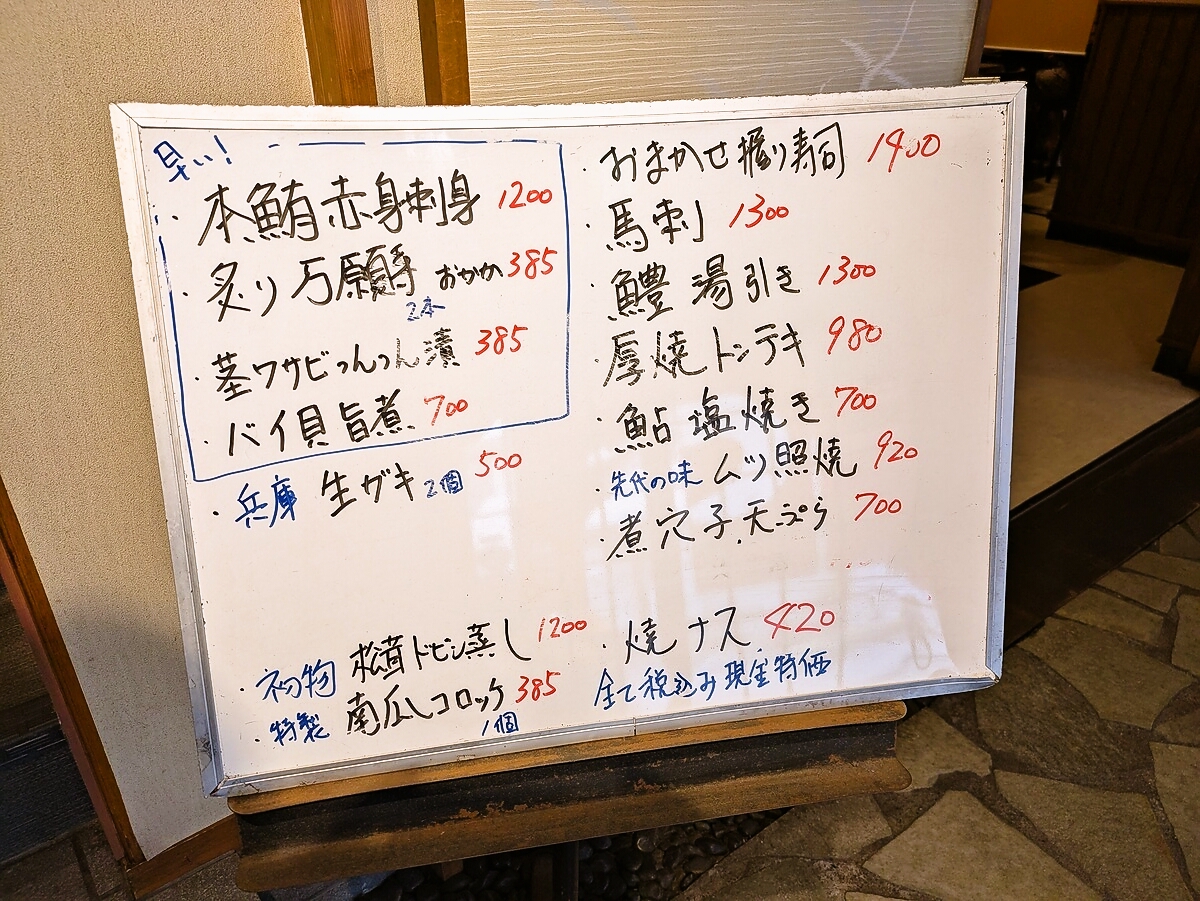 早い!
・本鮪赤身刺身 1200
・炙り万願寺 おかか 385
2本
・茎ワサビつんつん漬 385
・バイ貝旨煮 700
・兵庫 生ガキ 2個 500
・初物 松茸ドビン蒸し 1200
・特製 南瓜コロッケ 385
1個
・おまかせ握り寿司 1400
・馬刺 1300
・鱧 湯引き 1300
・厚焼トンテキ 980
・鮎塩焼き 700
・先代の味 ムツ照焼 920
・煮穴子天ぷら 700
・焼ナス 420
全て税込み現金特価